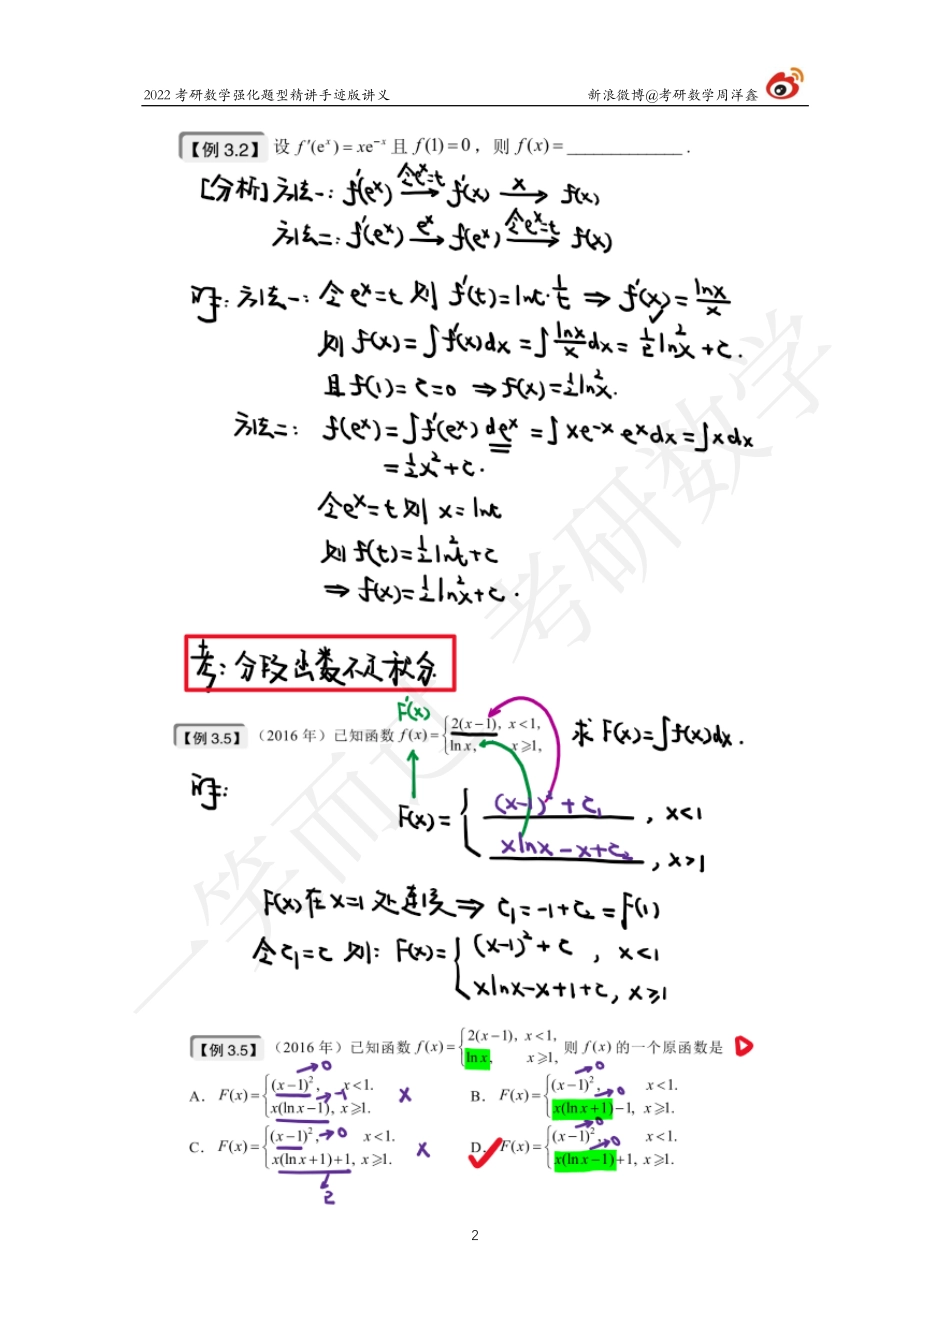 2022 考研数学强化题型精讲手迹版讲义 新浪微博@考研数学周洋鑫
【例 3.2】 设 f′(eˣ) = xe⁻ˣ 且 f(1) = 0，则 f(x) = ____________ .
[分析] 方法一: f′(eˣ) —令eˣ=t→ f′(x) —x→ f(x)
方法二: f′(eˣ) —eˣ→ f(eˣ) —令eˣ=t→ f(x)
解: 方法一: 令 eˣ=t 则 f′(t)=lnt·1/t ⇒ f′(x)=lnx/x
则 f(x)=∫f′(x)dx=∫lnx/x dx=½ln²x+C.
且 f(1)=C=0 ⇒ f(x)=½ln²x.
方法二: f(eˣ)=∫f′(eˣ)deˣ=∫xe⁻ˣeˣdx=∫xdx
=½x²+C.
令eˣ=t 则 x=lnt
则 f(t)=½ln²t+C
⇒ f(x)=½ln²x+C.
考: 分段函数不定积分
F′(x)
【例 3.5】（2016 年）已知函数 f(x) = { 2(x−1), x<1, 求 F(x)=∫f(x)dx.
ln x, x⩾1,
解:
F(x)= { (x-1)²+C₁ , x<1
xlnx-x+C₂ , x>1
F(x)在x=1处连续⇒ C₁=-1+C₂=F(1)
令C₁=C 则: F(x)= { (x-1)²+C , x<1
xlnx-x+1+C, x⩾1
【例 3.5】（2016 年）已知函数 f(x) = { 2(x−1), x<1, 则 f(x) 的一个原函数是 D
ln x, x⩾1,
→0 →0
A． F(x) = { (x−1)², x<1. B． F(x) = { (x−1)², x<1.
→-1 x →0
x(ln x−1), x⩾1. x(ln x+1)−1, x⩾1.
→0
C． F(x) = { (x−1)², →0 x<1. x D． F(x) = { (x−1)², →0 x<1.
x(ln x+1)+1, x⩾1. x(ln x−1)+1, x⩾1.
2
2
一笑而过 考研数学